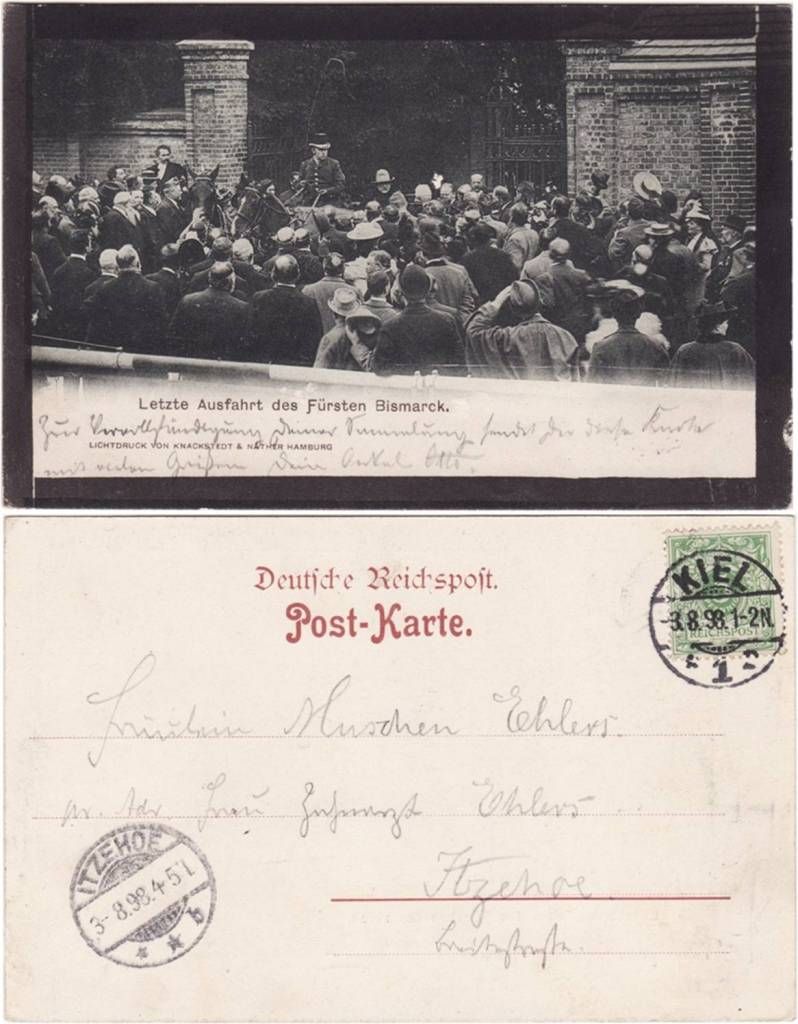 Letzte Ausfahrt des Fürsten Bismarck.
Zur Vervollständigung Deiner Sammlung sendet Dir diese Karte
LICHTDRUCK VON KNACKSTEDT & NÄTHER HAMBURG
mit vielen Grüßen Dein Onkel Otto.
Deutsche Reichspost.
Post-Karte.
KIEL
-3.8.98.1-2N.
1
REICHSPOST
Fräulein Ehlers.
pr. Adr. Frau Zahnarzt Ehlers
ITZEHOE
3-8.98.4-5
b
Itzehoe
Breitestraße.